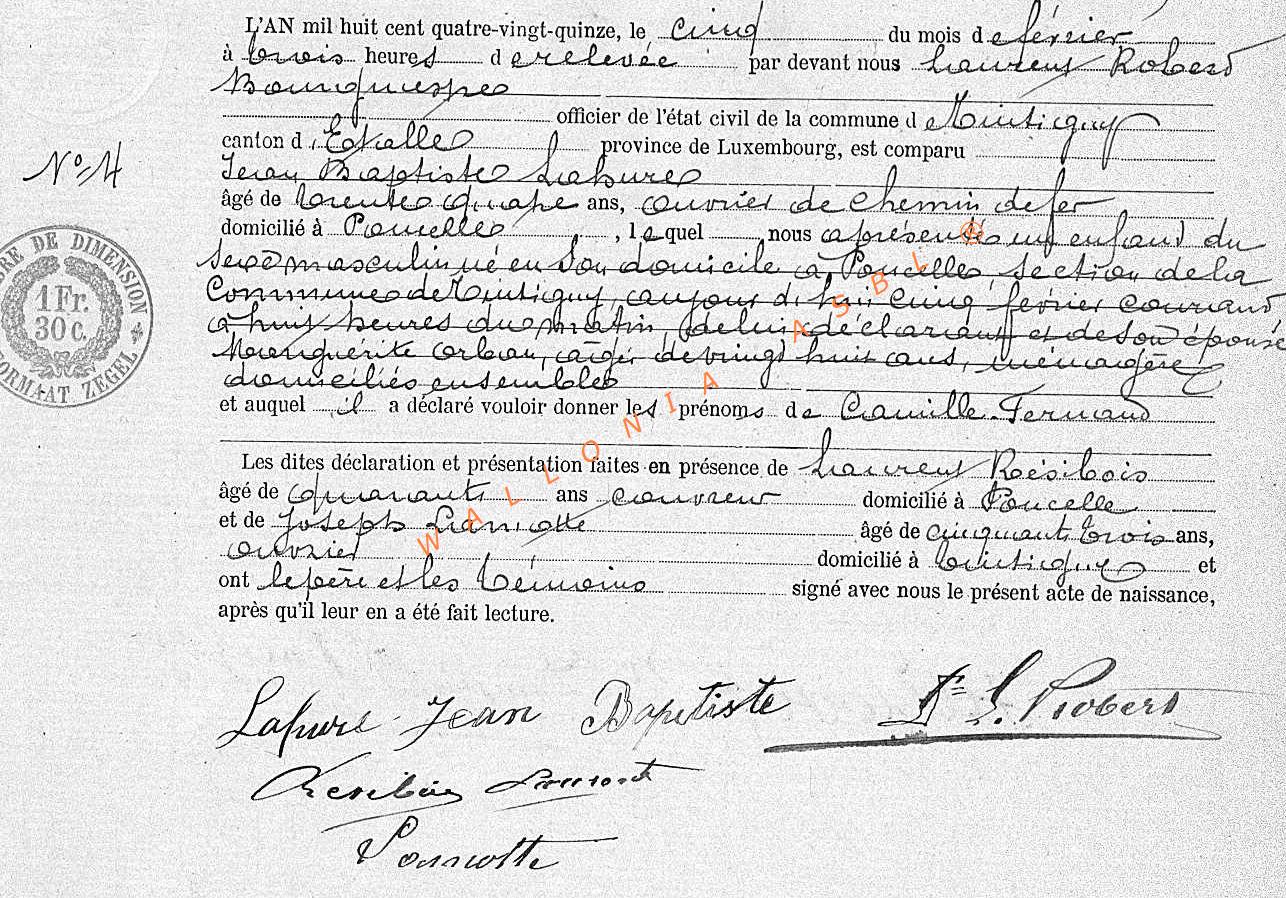 L'AN mil huit cent quatre-vingt-quinze, le cinq du mois de février
à trois heures de relevée par devant nous Laurent Robert
Bourguespe
officier de l'état civil de la commune de Tintigny
canton d'Etalle province de Luxembourg, est comparu
N° 4
Jean Baptiste Lahure
âgé de trente quatre ans, ouvrier de chemin de fer
domicilié à Poncelle, lequel nous a présenté un enfant du
sexe masculin né en son domicile à Poncelle, section de la
commune de Tintigny, aujourd'hui cinq février courant
à huit heures du matin, de lui déclarant et de son épouse
Marguérite, âgée de vingt huit ans, ménagère
domiciliés ensemble
et auquel il a déclaré vouloir donner les prénoms de Camille-Fernand
Les dites déclaration et présentation faites en présence de Laurent Résibois
âgé de quarante ans couvreur domicilié à Poncelle
et de Joseph Lamotte âgé de cinquante trois ans,
ouvrier domicilié à Tintigny et
ont le père et les témoins signé avec nous le présent acte de naissance,
après qu'il leur en a été fait lecture.
Lahure Jean Baptiste
L. Robert
Resibois Laurent
Lamotte
TIMBRE DE DIMENSION
1 Fr.
30 c.
FORMAAT ZEGEL
WALLONIA ASBL ®